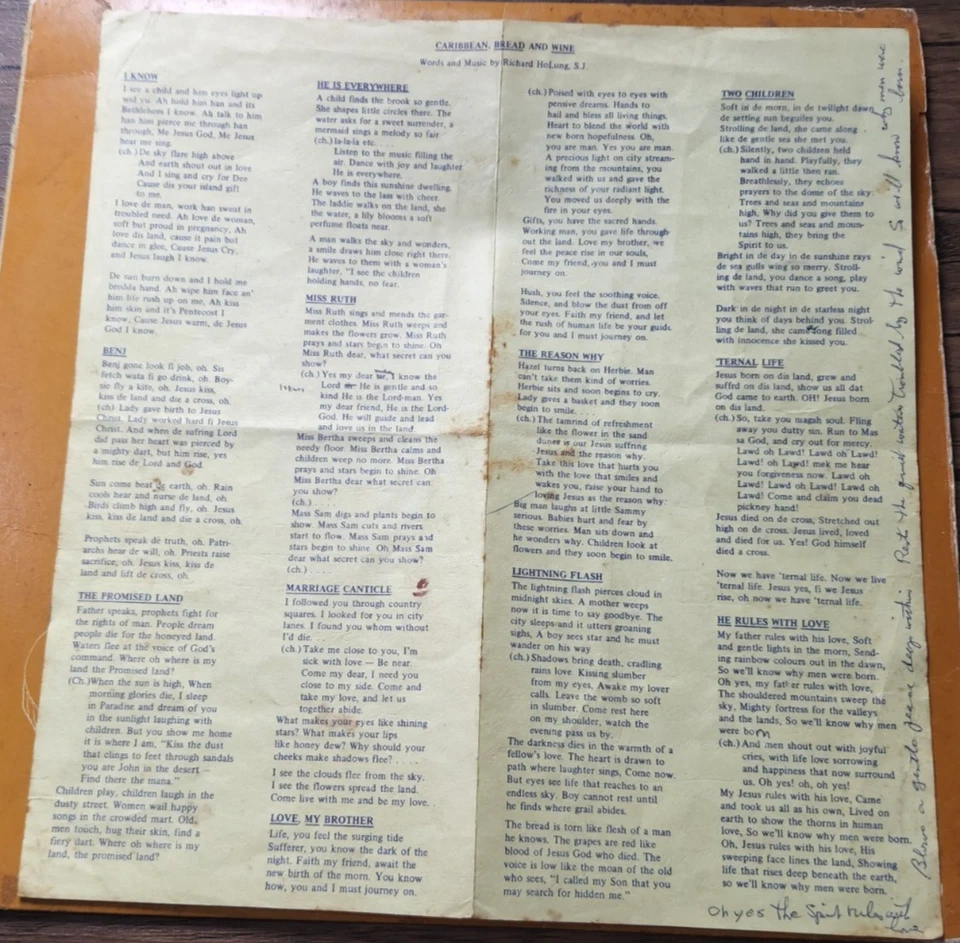 CARIBBEAN, BREAD AND WINE
Words and Music by Richard HoLung, S.J.
I KNOW
I see a child and him eyes light up
wid yu. Ah hold him han and its
Bethlehem I know. Ah talk to him
han him pierce me through han
through, Me Jesus God, Me Jesus
hear me sing.
(ch.) De sky flare high above
And earth shout out in love
And I sing and cry for Dee
Cause dis your island gift
to me.
I love de man, work han sweat in
troubled need. Ah love de woman,
soft but proud in pregnancy, Ah
love dis land, cause it pain but
dance in glee, Cause Jesus Cry,
and Jesus laugh I know.
De sun burn down and I hold me
brodda hand. Ah wipe him face an'
him life rush up on me, Ah kiss
him skin and it's Pentecost I
know, Cause Jesus warm, de Jesus
God I know.
BENJ
Benj gone look fi job, oh. Sis
fetch wata fi go drink, oh. Boy-
sie fly a kite, oh. Jesus kiss,
kiss de land and die a cross, oh.
(ch) Lady gave birth to Jesus
Christ. Lady worked hard fi Jesus
Christ. And when de sufring Lord
did pass her heart was pierced by
a mighty dart, but him rise, yes
him rise de Lord and God.
Sun come beat de earth, oh. Rain
cools hear and nurse de land, oh.
Birds climb high and fly, oh. Jesus
kiss, kiss de land and die a cross, oh.
Prophets speak de truth, oh. Patri-
archs hear de will, oh. Priests raise
sacrifice, oh. Jesus kiss, kiss de
land and lift de cross, oh.
THE PROMISED LAND
Father speaks, prophets fight for
the rights of man. People dream
people die for the honeyed land.
Waters flee at the voice of God's
command. Where oh where is my
land the Promised land?
(Ch.)When the sun is high, When
morning glories die, I sleep
in Paradise and dream of you
in the sunlight laughing with
children. But you show me home
it is where I am, "Kiss the dust
that clings to feet through sandals
you are John in the desert —
Find there the mana."
Children play, children laugh in the
dusty street. Women wail happy
songs in the crowded mart. Old,
men touch, hug their skin, find a
fiery dart. Where oh where is my
land, the promised land?
HE IS EVERYWHERE
A child finds the brook so gentle.
She shapes little circles there. The
water asks for a sweet surrender, a
mermaid sings a melody so fair
(ch.) la-la-la etc. . . .
Listen to the music filling the
air. Dance with joy and laughter
He is everywhere.
A boy finds this sunshine dwelling.
He waves to the lass with cheer.
The laddie walks on the land, she
the water, a lily blooms a soft
perfume floats near.
A man walks the sky and wonders,
a smile draws him close right there.
He waves to them with a woman's
laughter, "I see the children
holding hands, no fear.
MISS RUTH
Miss Ruth sings and mends the gar-
ment clothes. Miss Ruth weeps and
makes the flowers grow. Miss Ruth
prays and stars begin to shine. Oh
Miss Ruth dear, what secret can you
show?
(ch.) Yes my dear sir, I know the
Lord sir He is gentle and so
kind He is the Lord-man. Yes
my dear friend, He is the Lord-
God. He will guide and lead
and love us in the land.
Miss Bertha sweeps and cleans the
needy floor. Miss Bertha calms and
children weep no more. Miss Bertha
prays and stars begin to shine. Oh
Miss Bertha dear what secret can
you show?
(ch.) . . . .
Mass Sam digs and plants begin to
show. Mass Sam cuts and rivers
start to flow. Mass Sam prays and
stars begin to shine. Oh Mass Sam
dear what secret can you show?
(ch.) . . . .
MARRIAGE CANTICLE
I followed you through country
squares. I looked for you in city
lanes. I found you whom without
I'd die. . . .
(ch.)Take me close to you, I'm
sick with love — Be near.
Come my dear, I need you
close to my side. Come and
take my love, and let us
together abide.
What makes your eyes like shining
stars? What makes your lips
like honey dew? Why should your
cheeks make shadows flee? . . . .
I see the clouds flee from the sky.
I see the flowers spread the land.
Come live with me and be my love. .
LOVE, MY BROTHER
Life, you feel the surging tide
Sufferer, you know the dark of the
night. Faith my friend, await the
new birth of the morn. You know
how, you and I must journey on.
(ch.) Poised with eyes to eyes with
pensive dreams. Hands to
hail and bless all living things.
Heart to blend the world with
new born hopefulness. Oh,
you are man. Yes you are man.
A precious light on city stream-
ing from the mountains, you
walked with us and gave the
richness of your radiant light.
You moved us deeply with the
fire in your eyes.
Gifts, you have the sacred hands.
Working man, you gave life through-
out the land. Love my brother, we
feel the peace rise in our souls,
Come my friend, you and I must
journey on.
Hush, you feel the soothing voice.
Silence, and blow the dust from off
your eyes. Faith my friend, and let
the rush of human life be your guide.
for you and I must journey on.
THE REASON WHY
Hazel turns back on Herbie. Man
can't take them kind of worries.
Herbie sits and soon begins to cry.
Lady gives a basket and they soon
begin to smile. . . .
(ch.) The tamrind of refreshment
like the flower in the sand
dunes is our Jesus suffring
Jesus and the reason why.
Take this love that hurts you
with the love that smiles and
wakes you, raise your hand to
loving Jesus as the reason why.
Big man laughs at little Sammy
serious. Babies hurt and fear by
these worries. Man sits down and
he wonders why. Children look at
flowers and they soon begin to smile.
LIGHTNING FLASH
The lightning flash pierces cloud in
midnight skies. A mother weeps
now it is time to say goodbye. The
city sleeps and it utters groaning
sighs, A boy sees star and he must
wander on his way
(ch.) Shadows bring death, cradling
rains love. Kissing slumber
from my eyes, Awake my lover
calls. Leave the womb so soft
in slumber. Come rest here
on my shoulder, watch the
evening pass us by.
The darkness dies in the warmth of a
fellow's love. The heart is drawn to
path where laughter sings, Come now.
But eyes see life that reaches to an
endless sky. Boy cannot rest until
he finds where grail abides.
The bread is torn like flesh of a man
he knows. The grapes are red like
blood of Jesus God who died. The
voice is low like the moan of the old
who sees, "I called my Son that you
may search for hidden me."
TWO CHILDREN
Soft in de morn, in de twilight dawn
de setting sun beguiles you.
Strolling de land, she came along
like de gentle sea she met you.
(ch.) Silently, two children held
hand in hand. Playfully, they
walked a little then ran.
Breathlessly, they echoes
prayers to the dome of the sky.
Trees and seas and mountains
high, Why did you give them to
us? Trees and seas and moun-
tains high, they bring the
Spirit to us.
Bright in de day in de sunshine rays
de sea gulls wing so merry. Stroll-
ing de land, you dance a song, play
with waves that run to greet you.
Dark in de night in de starless night
you think of days behind you. Strol-
ling de land, she came song filled
with innocence she kissed you.
'TERNAL LIFE
Jesus born on dis land, grew and
suffrd on dis land, show us all dat
God came to earth. OH! Jesus born
on dis land.
(ch.)So, take you magah soul. Fling
away you dutty sin. Run to Mas
sa God, and cry out for mercy.
Lawd oh Lawd! Lawd oh Lawd!
Lawd! oh Lawd! mek me hear
you forgiveness now. Lawd oh
Lawd! Lawd oh Lawd! Lawd oh
Lawd! Come and claim you dead
pickney hand!
Jesus died on de cross, Stretched out
high on de cross. Jesus lived, loved
and died for us. Yes! God himself
died a cross.
Now we have 'ternal life. Now we live
'ternal life. Jesus yes, fi we Jesus
rise, oh now we have 'ternal life.
HE RULES WITH LOVE
My father rules with his love, Soft
and gentle lights in the morn, Send-
ing rainbow colours out in the dawn,
So we'll know why men were born.
Oh yes, my father rules with love,
The shouldered mountains sweep the
sky, Mighty fortress for the valleys
and the lands, So we'll know why men
were born
(ch.) And men shout out with joyful
cries, with life love sorrowing
and happiness that now surround
us. Oh yes! oh, oh yes!
My Jesus rules with his love, Came
and took us all as his own, Lived on
earth to show the thorns in human
love, So we'll know why men were born.
Oh, Jesus rules with his love, His
sweeping face lines the land, Showing
life that rises deep beneath the earth,
so we'll know why men were born.
Oh yes the Spirit rules with love
Blows a gentle peace deep within Rest the good water troubled by the wind So we'll know why men were born.